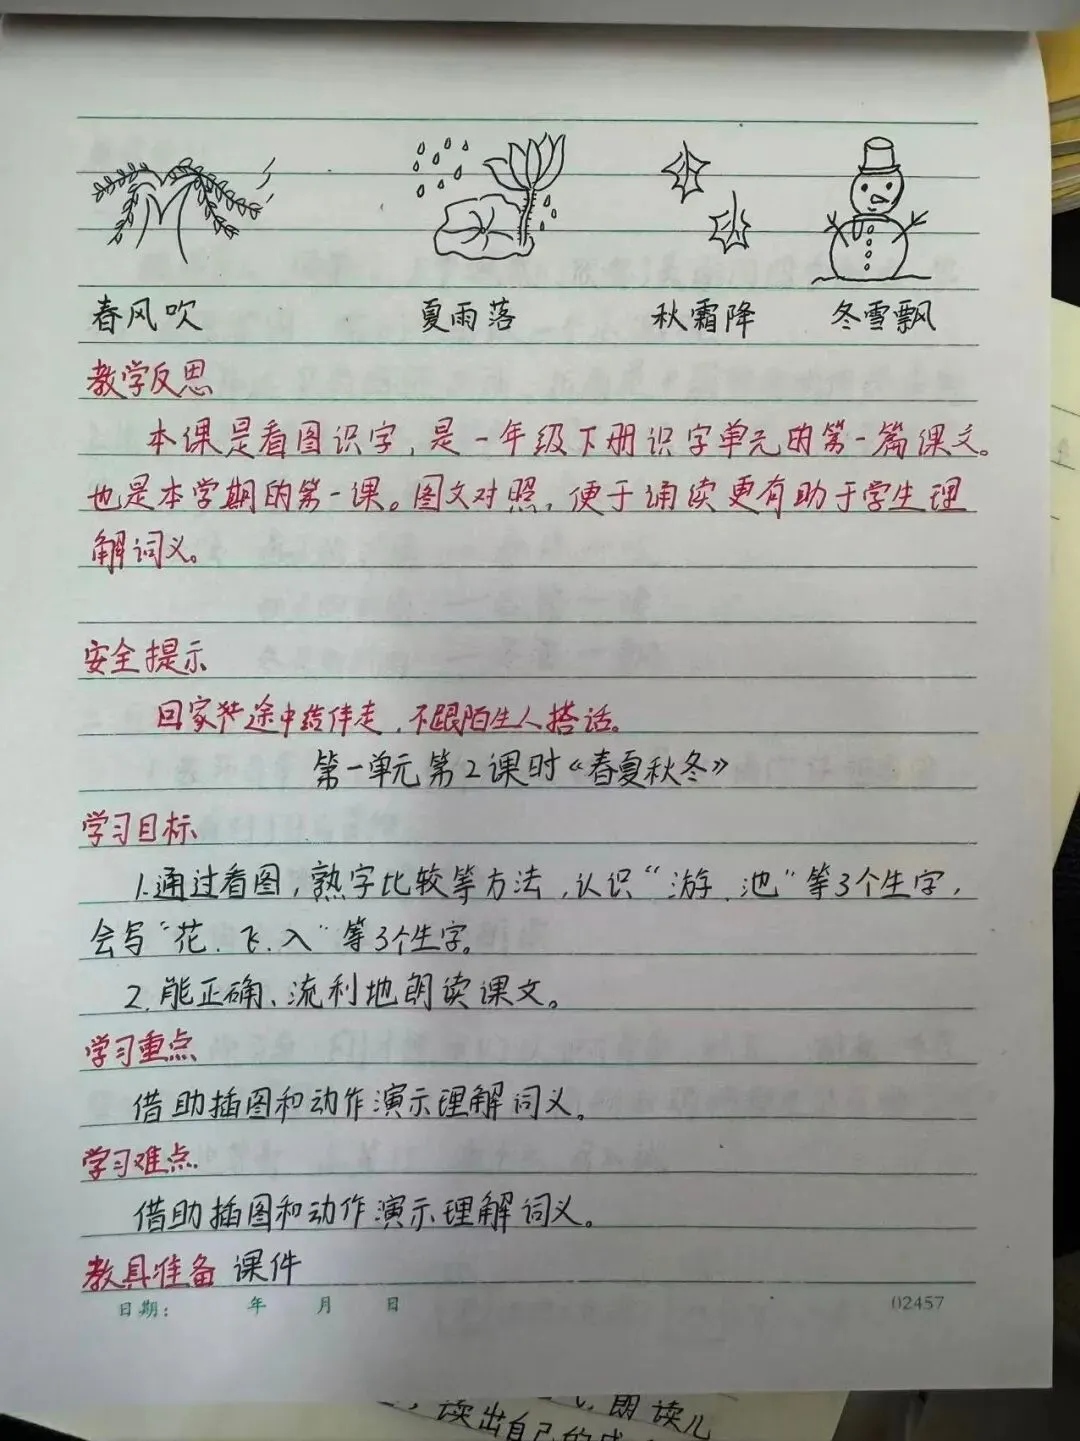 春风吹 夏雨落 秋霜降 冬雪飘
教学反思
本课是看图识字,是一年级下册识字单元的第一篇课文。
也是本学期的第一课。图文对照,便于诵读更有助于学生理
解词义。
安全提示
回家途中结伴走,不跟陌生人搭话。
第一单元第2课时《春夏秋冬》
学习目标
1.通过看图,熟字比较等方法,认识“游、池”等3个生字,
会写“花、飞、入”等3个生字。
2.能正确、流利地朗读课文。
学习重点
借助插图和动作演示理解词义。
学习难点
借助插图和动作演示理解词义。
教具准备 课件
日期: 年 月 日 02457
朗读儿
,读出自己的